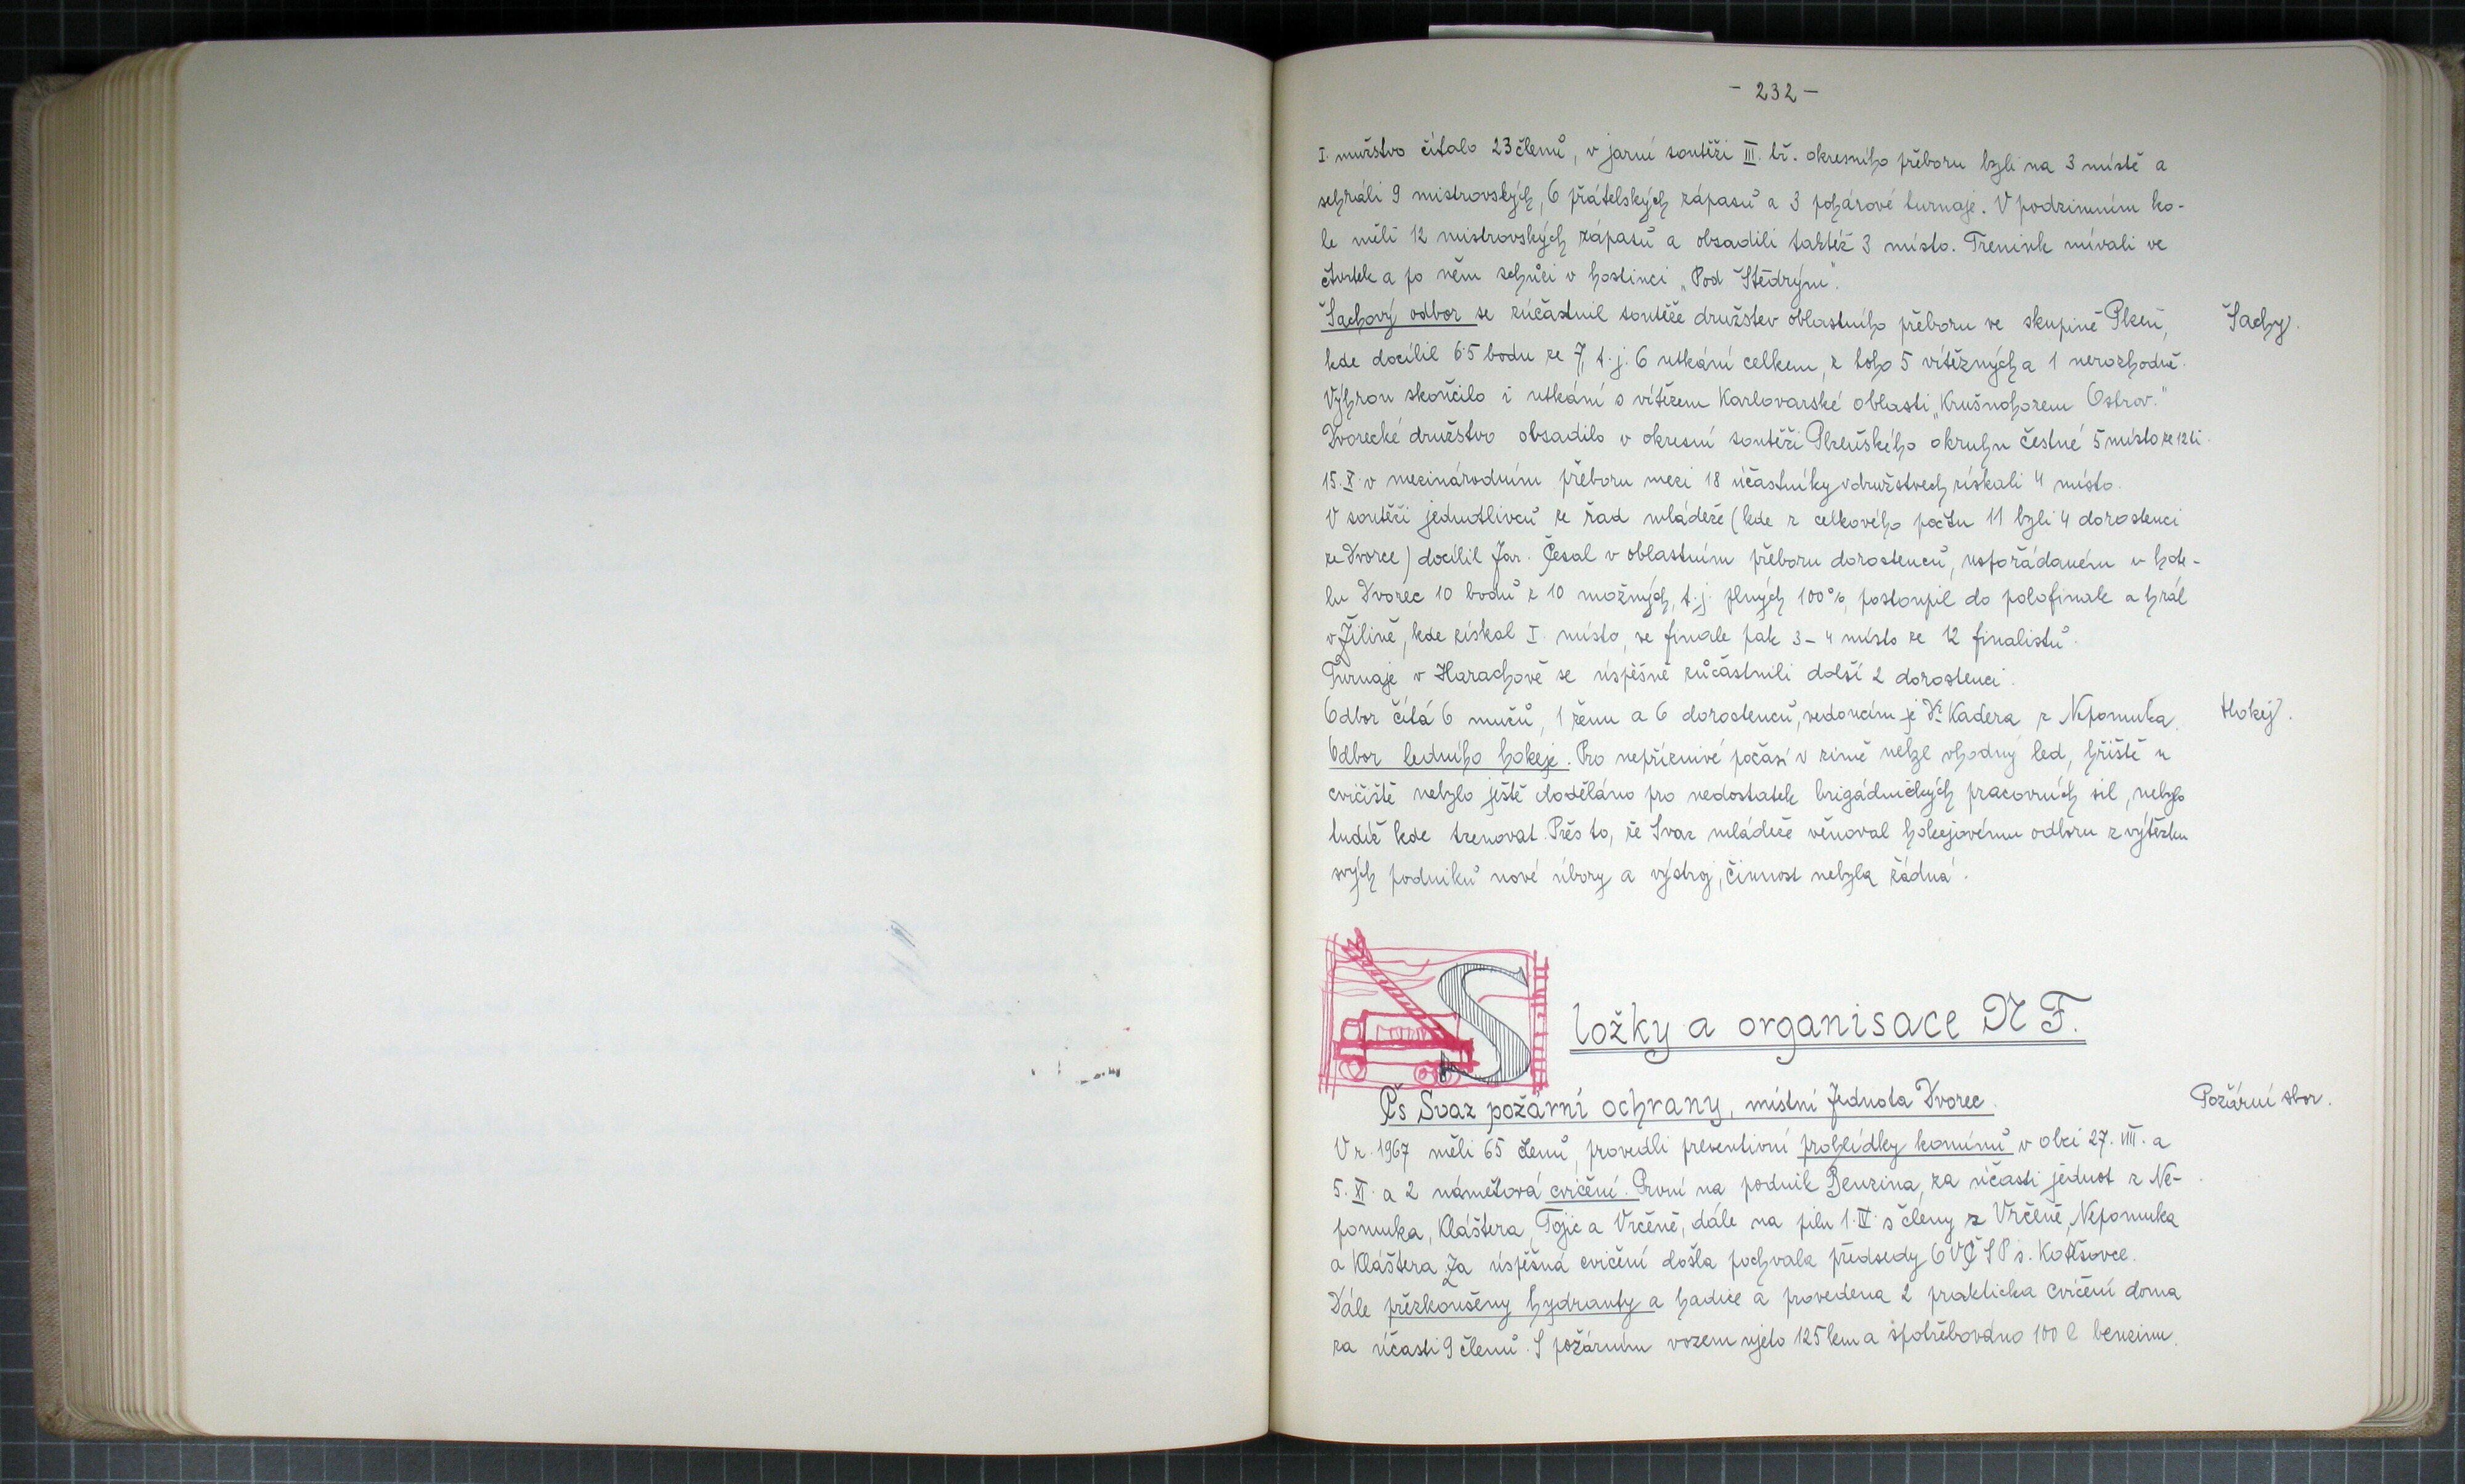 - 232 -
I. mužstvo čítalo 23 členů, v jarní soutěži III. tř. okresního přeboru byli na 3 místě a
sehráli 9 mistrovských, 6 přátelských zápasů a 3 pohárové turnaje. V podzimním ko-
le měli 12 mistrovských zápasů a obsadili taktéž 3 místo. Trenink mívali ve
čtvrtek a po něm schůzi v hostinci „Pod Štědrým".
Šachový odbor se zúčastnil soutěže družstev oblastního přeboru ve skupině Plzeň,
Šachy.
kde docílil 6·5 bodu ze 7, t. j. 6 utkání celkem, z toho 5 vítězných a 1 nerozhodně.
Výhrou skončilo i utkání s vítězem Karlovarské oblasti „Krušnohorem Ostrov."
Dvorecké družstvo obsadilo v okresní soutěži Plzeňského okruhu čestné 5 místo ze 12ti.
15. X. v mezinárodním přeboru mezi 18 účastníky v družstvech získali 4 místo.
V soutěži jednotlivců ze řad mládeže (kde z celkového počtu 11 byli 4 dorostenci
ze Dvorce) docílil Jar. Česal v oblastním přeboru dorostenců, uspořádaném v hote-
lu Dvorec 10 bodů z 10 možných, t. j. plných 100%, postoupil do polofinale a hrál
v Žilině, kde získal I. místo, ve finale pak 3-4 místo ze 12 finalistů.
Turnaje v Harachově se úspěšně zůčastnili další 2 dorostenci.
Odbor čítá 6 mužů, 1 ženu a 6 dorostenců, vedoucím je Dr. Kadera z Nepomuka.
Hokej.
Odbor ledního hokeje. Pro nepříznivé počasí v zimě nebyl vhodný led, hřiště u
cvičiště nebylo ještě doděláno pro nedostatek brigádnických pracovních sil, nebylo
tudíž kde trenovat. Přes to, že Svaz mládeže věnoval hokejovému odboru z výtěžku
svých podniků nové úbory a výstroj, činnost nebyla žádná.
Složky a organisace N F.
Čs Svaz požární ochrany, místní Jednota Dvorec.
Požární sbor.
V r. 1967 měli 65 členů, provedli preventivní prohlídky komínů v obci 27. VIII. a
5. XI. a 2 námětová cvičení. První na podnik Benzina, za účasti jednot z Ne-
pomuka, Kláštera, Tojic a Vrčeně, dále na pilu 1. IV. s členy z Vrčeně, Nepomuka
a Kláštera. Za úspěšná cvičení došla pochvala předsedy OVČSP s. Kotšovce.
Dále přezkoušeny hydranty a hadice a provedena 2 praktická cvičení doma
za účasti 9 členů. S požárním vozem ujeto 125 km a spotřebováno 100 l benzinu.